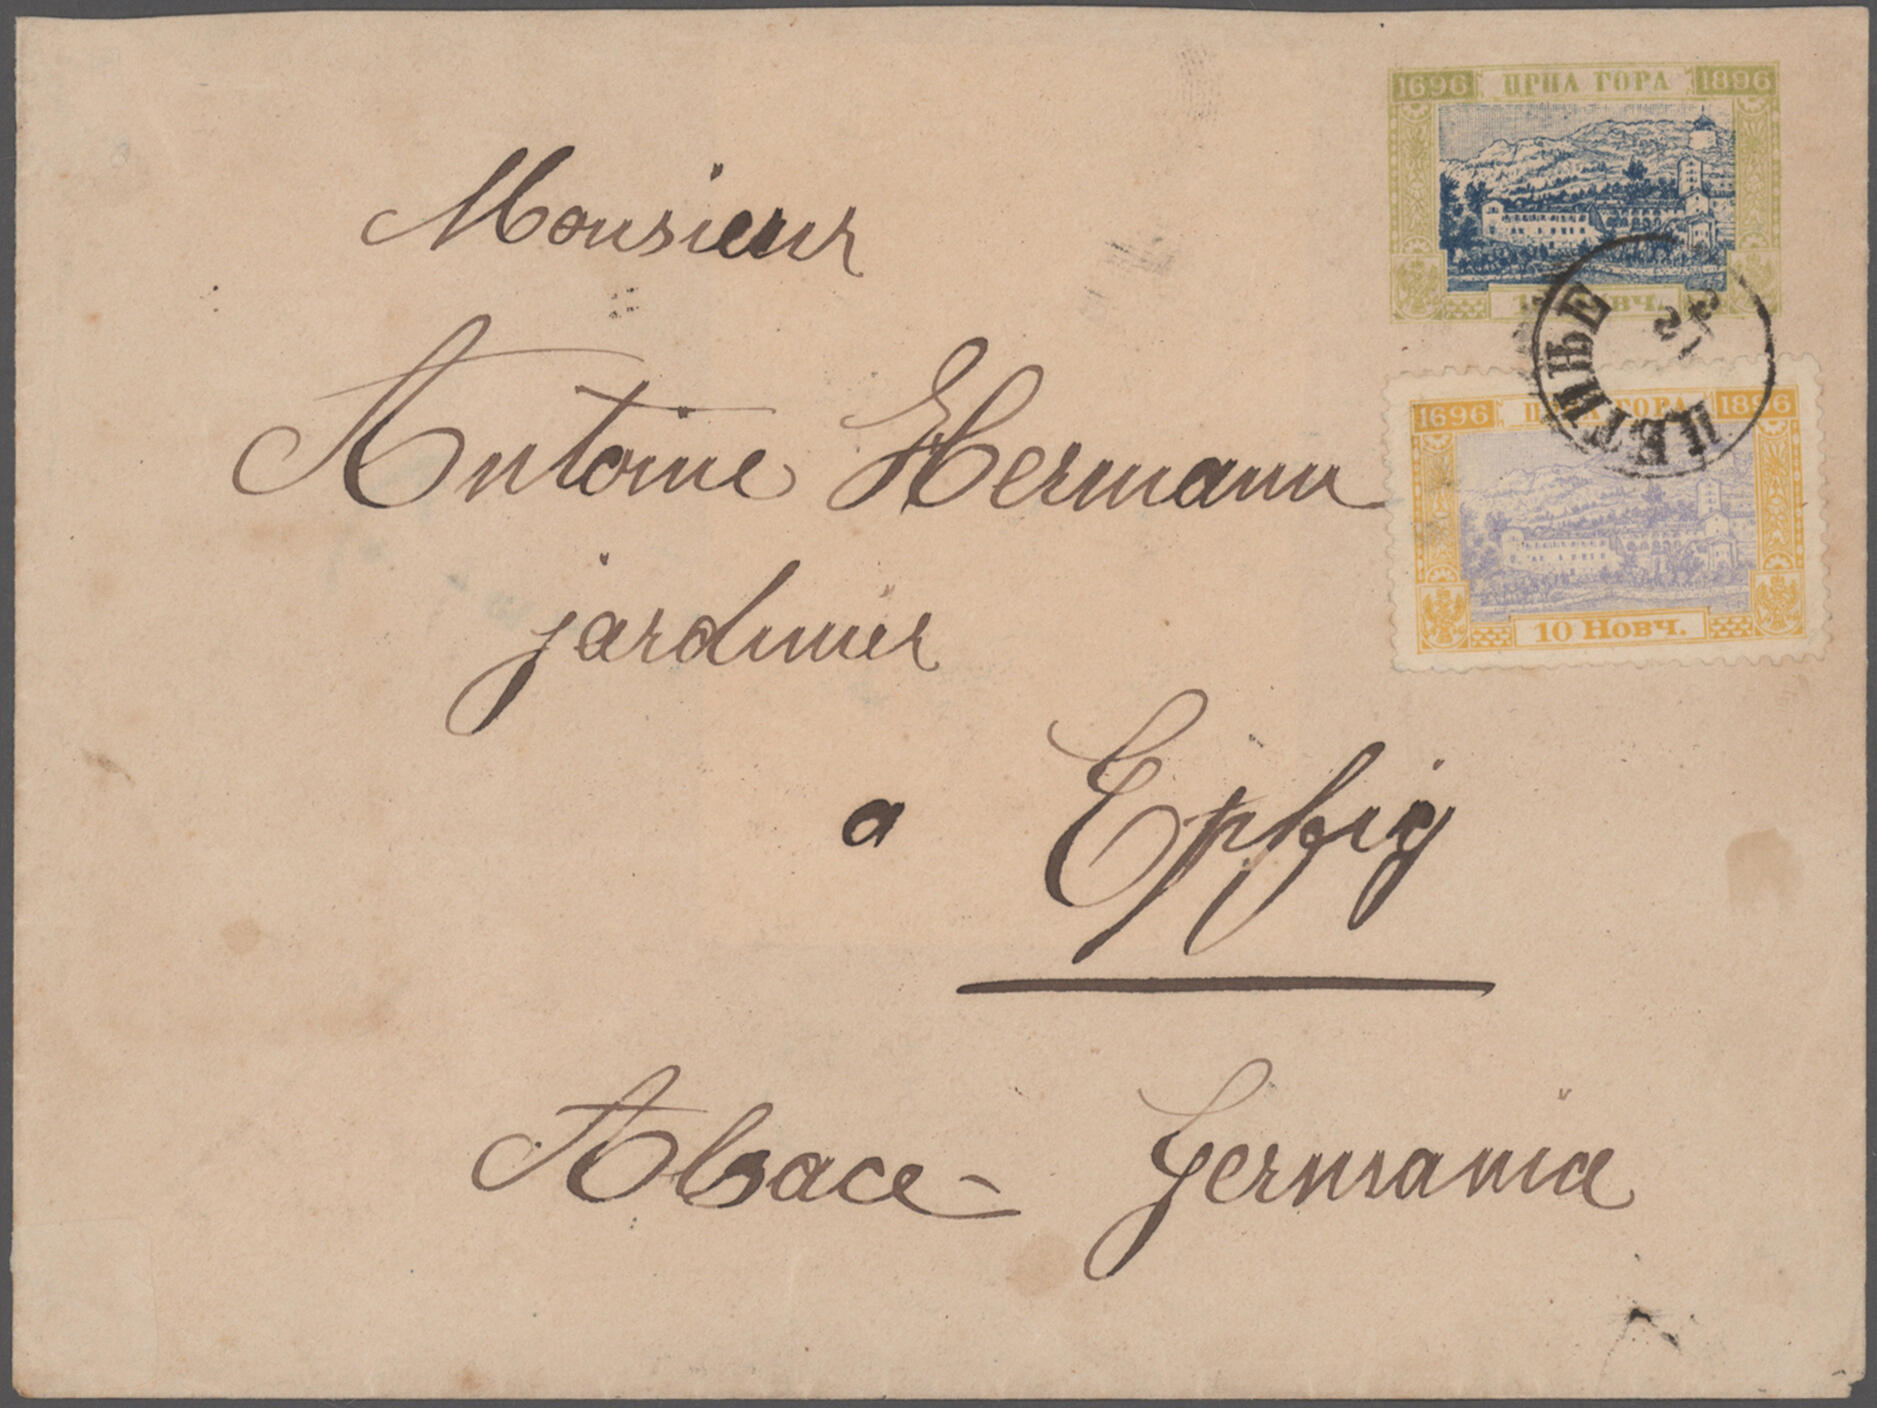 1696 ЦРНА ГОРА 1896
ЦЕТИЊЕ
1696 ЦРНА ГОРА 1896
10 Новч.
Monsieur
Antoine Hermann
jardinier
a Epfig
Alsace - Germania